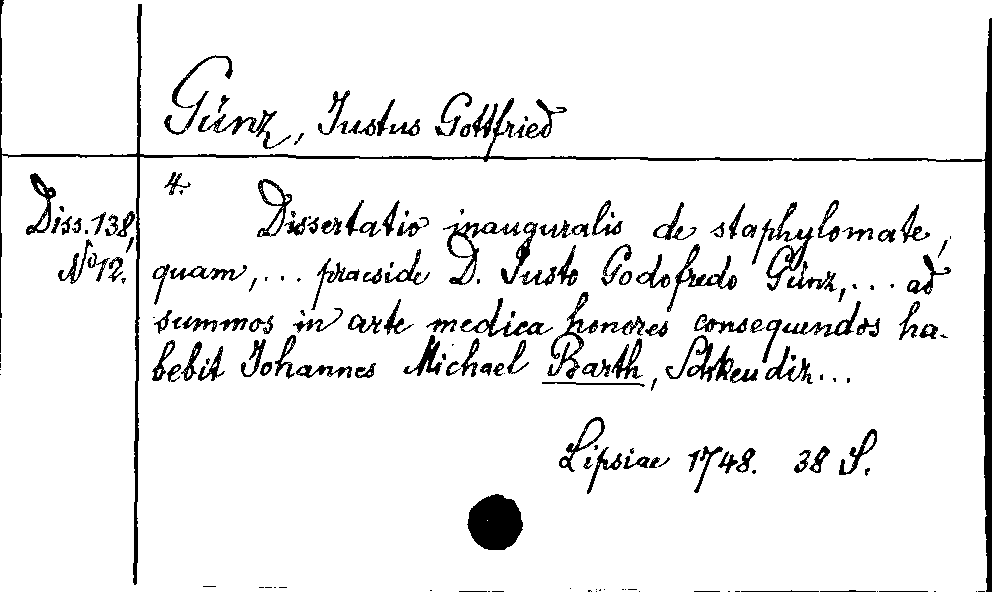 Günz, Justus Gottfried
4.
Diss. 138,
No 12.
Dissertatio inauguralis de staphylomate,
quam, ... praeside D. Justo Godofredo Günz, ... ad
summos in arte medica honores consequendos ha-
bebit Johannes Michael Barth, Schkeudiz ...
Lipsiae 1748. 38 S.